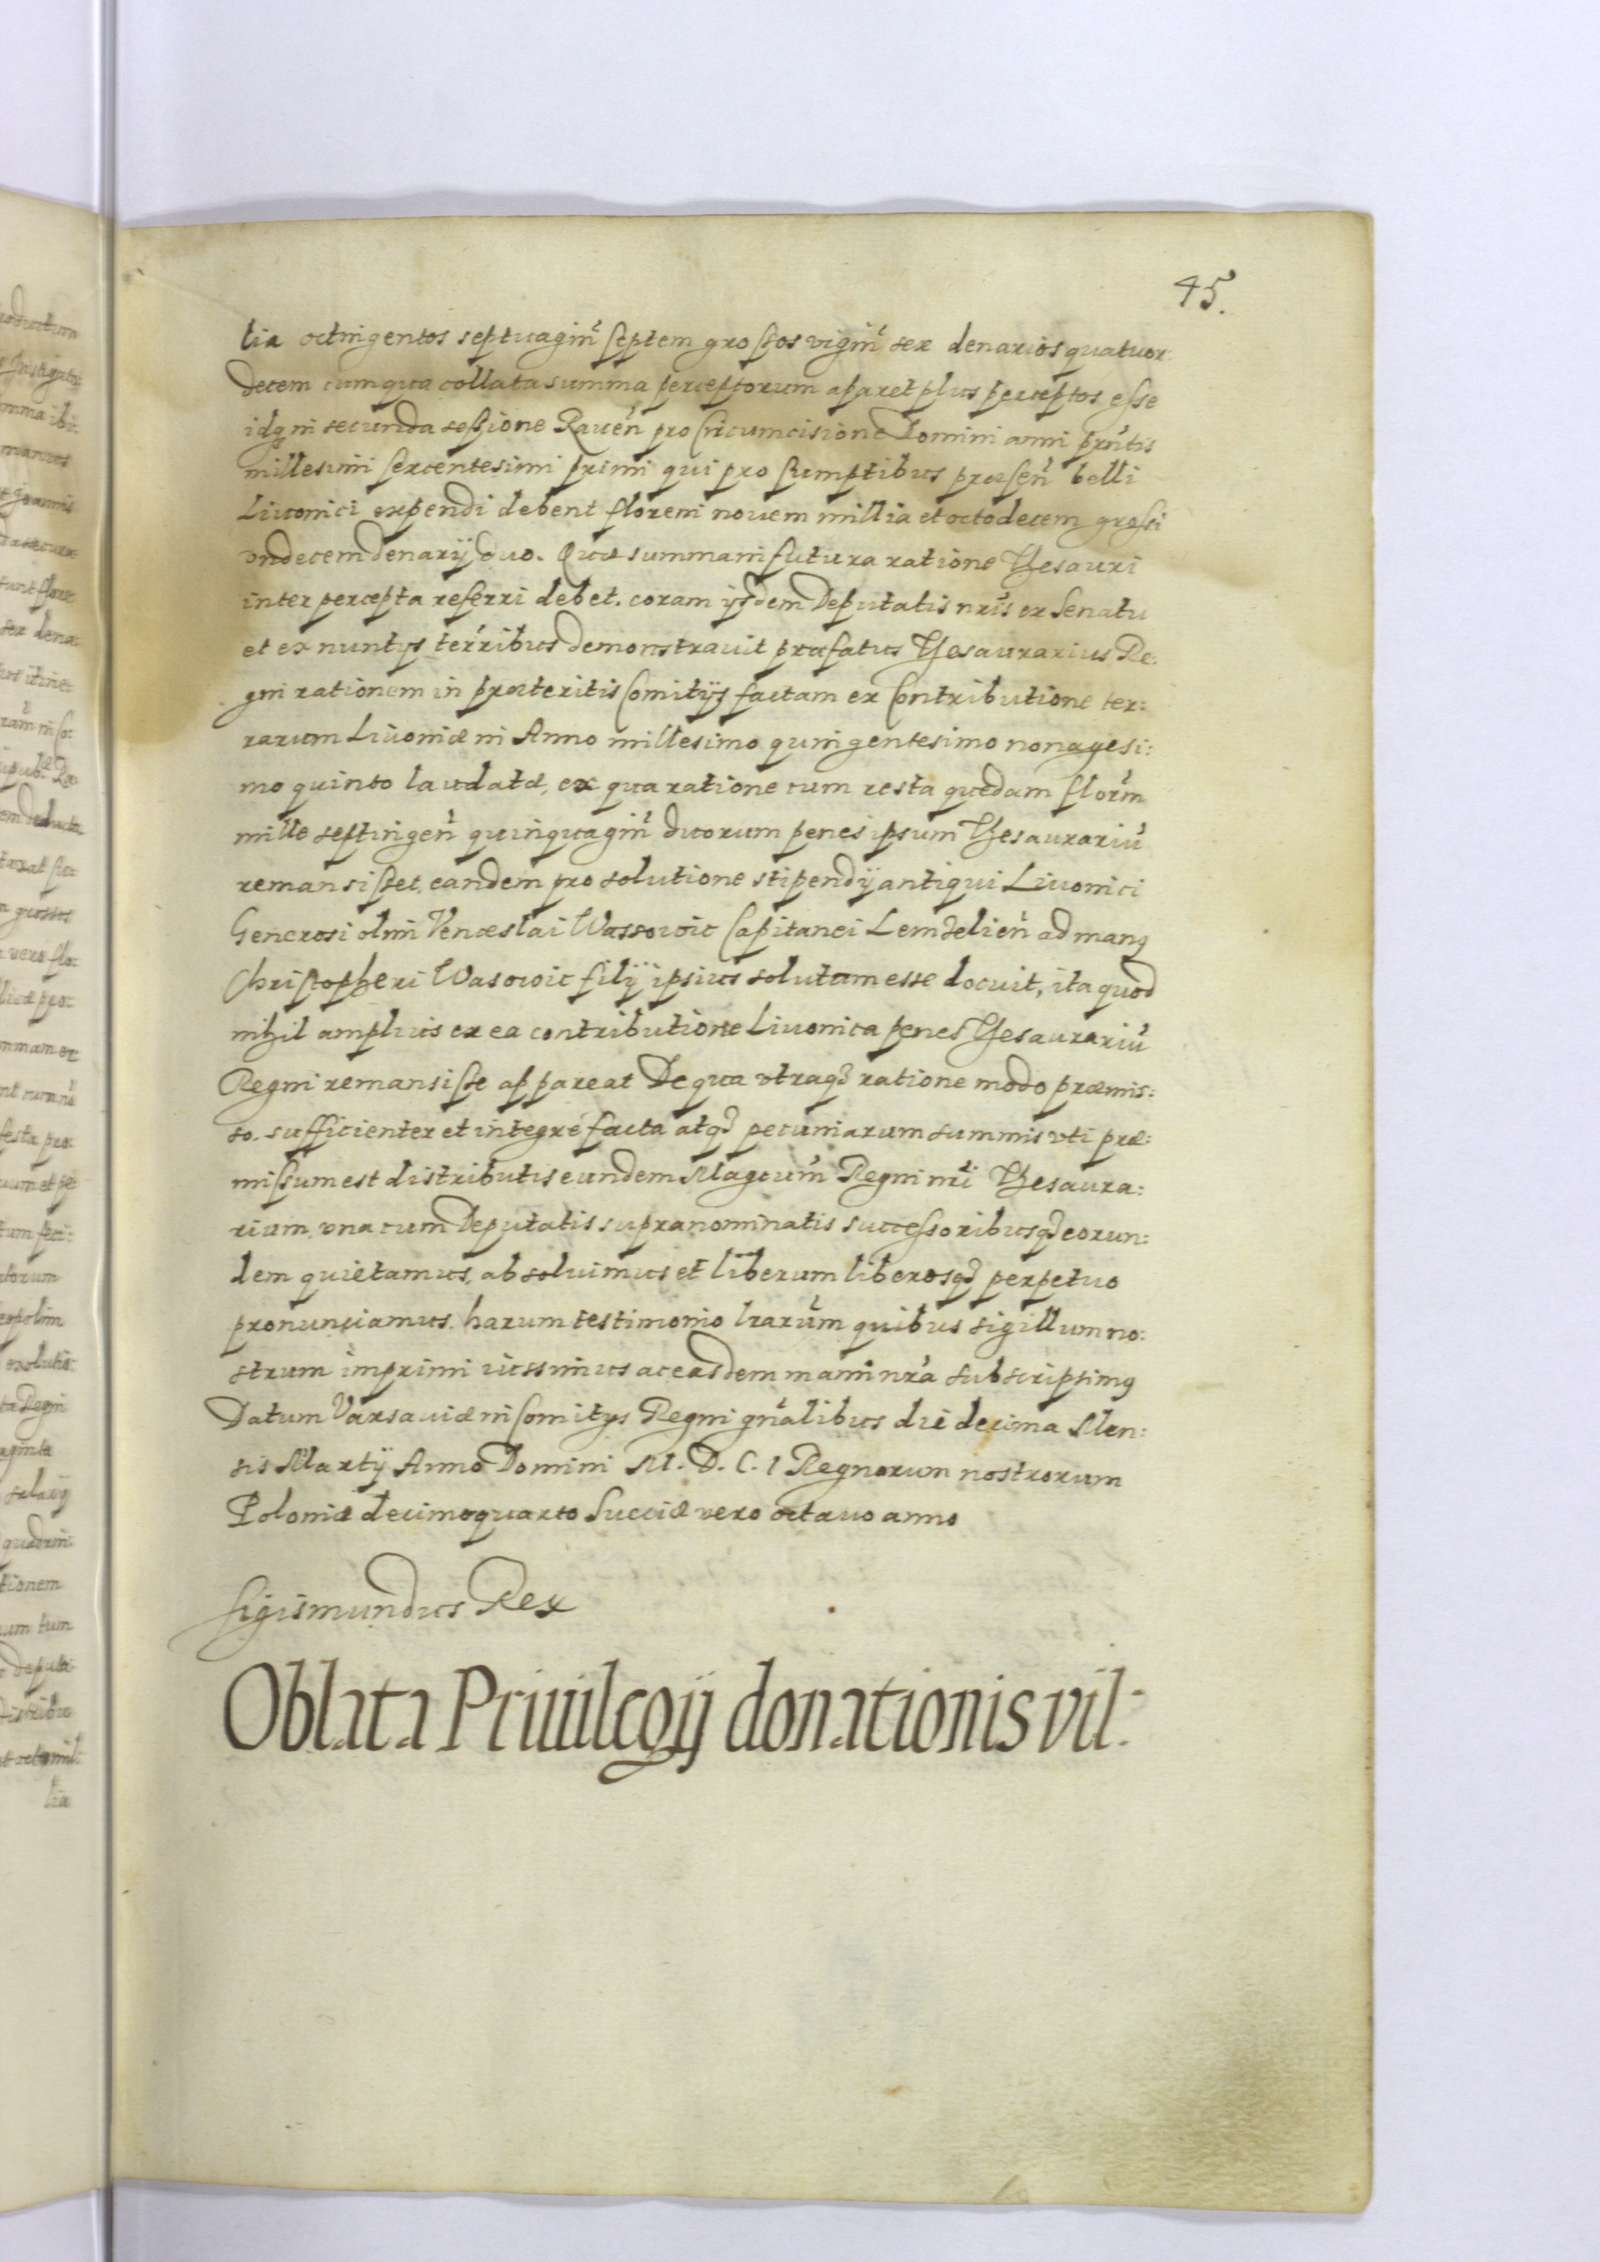 45.
lia octingentos septuagin̄ septem grossos vigin̄ sex denarios quatuor:
decem cum qua collata summa perceptorum aparet plus perceptos esse
idq in secunda sessione Rauen̄ pro Circumcisione Domini anni prn̄tis
millesimi sexcentesimi primi qui pro sumptibus præsen̄ belli
Liuonici expendi debent floreni nouem millia et octodecem grossi
vndecem denarij duo. Quæ summa in futura ratione Thesauri
inter percepta referri debet. coram ijsdem Deputatis nr̄is ex Senatu
et ex nuntijs terr̄ribus demonstrauit præfatus Thesaurarius Re:
gni rationem in præteritis Comitijs factam ex Contributione ter:
rarum Liuoniæ in Anno millesimo quingentesimo nonagesi:
mo quinto laudatæ, ex qua ratione cum resta quædam flor̄m
mille septingen̄ quinquagin̄ duorum penes ipsum Thesaurariū
remansisset, eandem pro solutione stipendij antiqui Liuonici
Generosi olim Venceslai Wassowic Capitanei Lemzelien̄ ad manq
Christopheri Wasowic filij ipsius solutam esse docuit, ita quod
nihil amplius ex ea contributione Liuonica penes Thesaurariū
Regni remansisse appareat De qua vtraq3 ratione modo præmis:
so. sufficienter et integre facta atq3 pecuniarum summis vti præ:
missum est distributis eundem Magcum̄ Regni nr̄i Thesaura:
rium, vna cum Deputatis supranominatis successoribusq3 eorun:
dem quietamus, absoluimus et liberum liberosq3 perpetuo
pronunciamus. harum testimonio lrarūm quibus sigillum no:
strum imprimi iussimus ac easdem manu nr̄a subscripsimq
Datum Varsauiæ in Comitijs Regni gn̄alibus die decima Men:
sis Martij Anno Domini M. D. C. I Regnorum nostrorum
Poloniæ decimoquarto Sueciæ vero octauo anno
Sigismundus Rex
Oblata Priuilegij donationis vil: